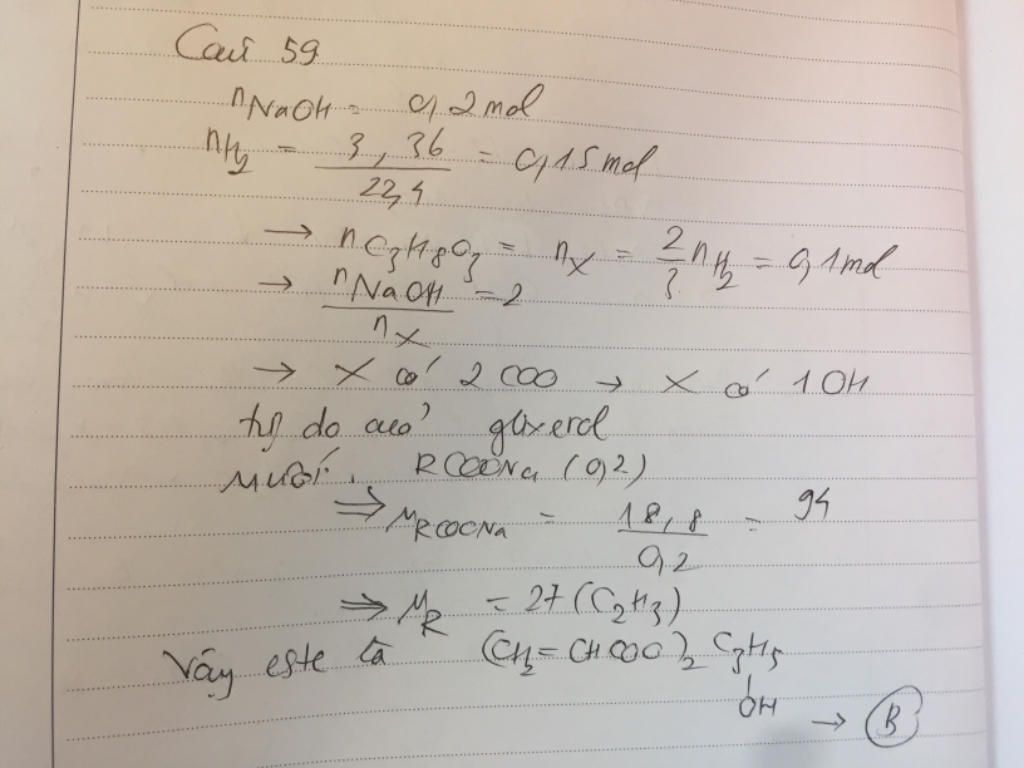 Câu 59
nNaOH = 0,2 mol
nH2 = 3,36 / 22,4 = 0,15 mol
→ nC3H8O3 = nX = 2/3 nH2 = 0,1 mol
→ nNaOH / nX = 2
→ X có 2 COO → X có 1 OH
tự do của glixerol
Muối: RCOONa (0,2)
⇒ MRCOONa = 18,8 / 0,2 = 94
⇒ MR = 27 (C2H3)
Vậy este là (CH2=CHCOO)2 C3H5
OH → B